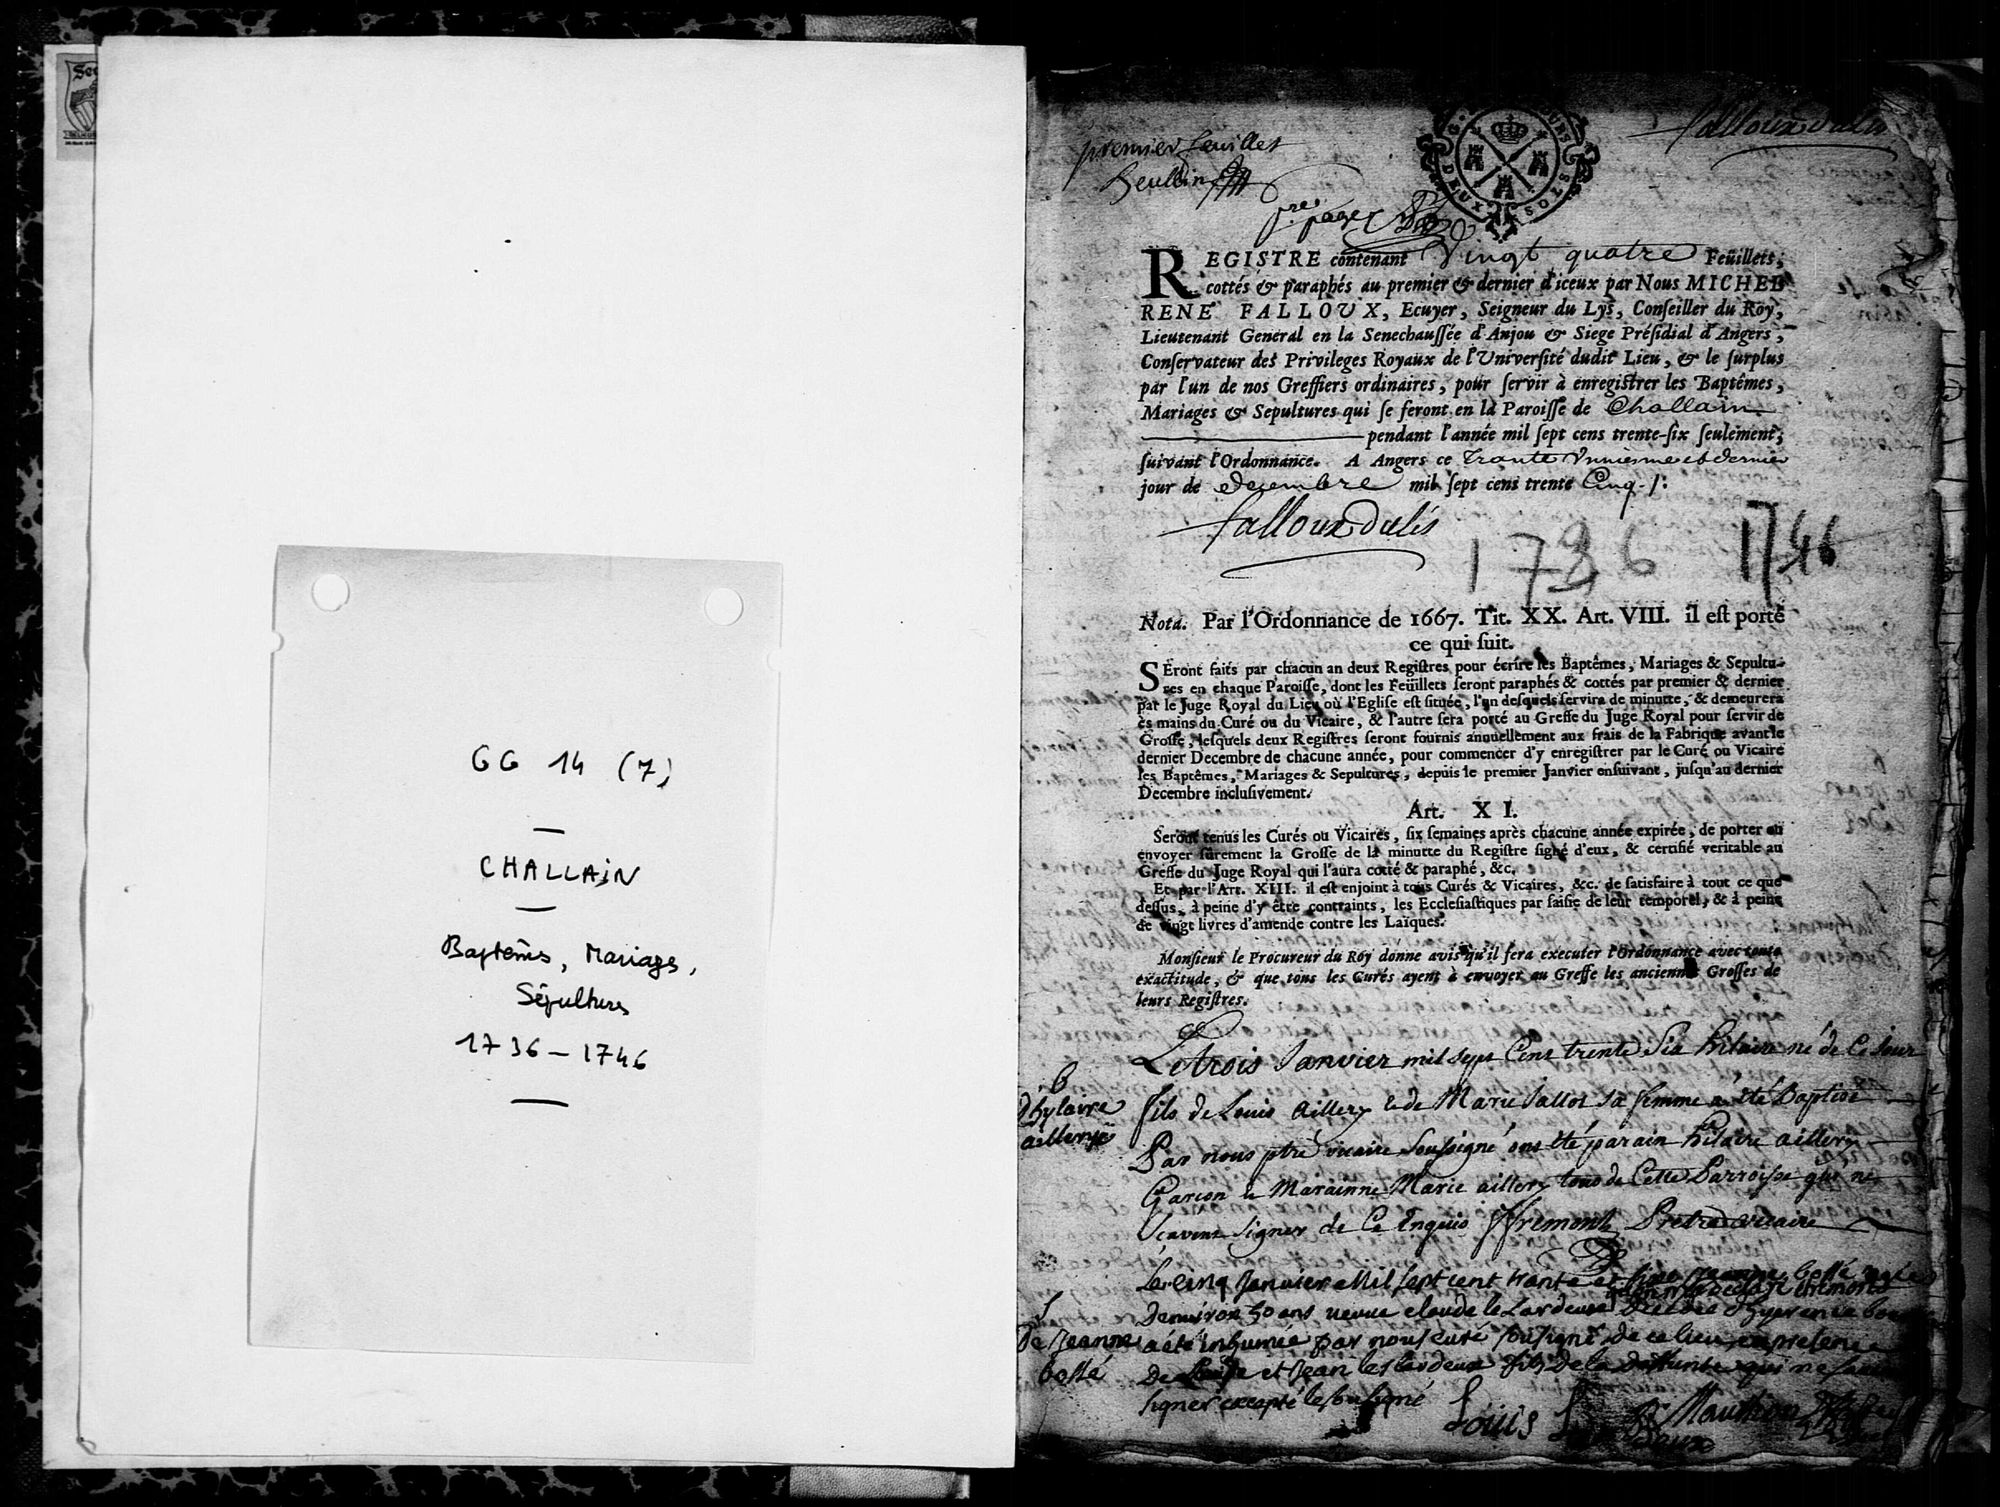 GG 14 (7)
CHALLAIN
Baptêmes, Mariages,
Sépultures
1736 – 1746
premier feuillet
pre. page
G.
TOURS
DEUX SOLS
Falloux dulis
REGISTRE contenant Vingt quatre Feüillets,
cottés & paraphés au premier & dernier d'iceux par Nous MICHEL
RENE' FALLOUX, Ecuyer, Seigneur du Lys, Conseiller du Roy,
Lieutenant General en la Senechaussée d'Anjou & Siege Présidial d'Angers,
Conservateur des Privileges Royaux de l'Université dudit Lieu, & le surplus
par l'un de nos Greffiers ordinaires, pour servir à enregistrer les Baptêmes,
Mariages & Sepultures qui se feront en la Paroisse de Challain
pendant l'année mil sept cens trente-six seulement;
suivant l'Ordonnance. A Angers ce Trante Unniesme et dernier
jour de decembre mil sept cens trente Cinq
Falloux dulis
1736 1746
Nota. Par l'Ordonnance de 1667. Tit. XX. Art. VIII. il est porté
ce qui suit.
SEront faits par chacun an deux Registres pour écrire les Baptêmes, Mariages & Sepultu-
res en chaque Paroisse, dont les Feüillets seront paraphés & cottés par premier & dernier
par le Juge Royal du Lieu où l'Eglise est située, l'un desquels servira de minutte, & demeurera
ès mains du Curé ou du Vicaire, & l'autre sera porté au Greffe du Juge Royal pour servir de
Grosse, lesquels deux Registres seront fournis annuellement aux frais de la Fabrique avant le
dernier Decembre de chacune année, pour commencer d'y enregistrer par le Curé ou Vicaire
les Baptêmes, Mariages & Sepultures, depuis le premier Janvier ensuivant, jusqu'au dernier
Decembre inclusivement.
Art. XI.
Seront tenus les Curés ou Vicaires, six semaines après chacune année expirée, de porter ou
envoyer sûrement la Grosse de la minutte du Registre signé d'eux, & certifié veritable au
Greffe du Juge Royal qui l'aura cotté & paraphé, &c.
Et par l'Art. XIII. il est enjoint à tous Curés & Vicaires, &c. de satisfaire à tout ce que
dessus, à peine d'y être contraints, les Ecclesiastiques par saisie de leur temporel, & à peine
de vingt livres d'amende contre les Laïques.
Monsieur le Procureur du Roy donne avis qu'il fera executer l'Ordonnance avec toute
exactitude, & que tous les Curés ayent à envoyer au Greffe les anciennes Grosses de
leurs Registres.
Le trois Janvier mil sept Cens trente Six hilaire né de Ce Jour
B
d'hylaire
aillery
fils de Louis aillery & de Marie Sallot Sa femme a été Baptisé
Par nous ptre vicaire Soussigné ont été parain hilaire aillery
Garcon & Marainne Marie aillery tous de Cette Parroisse qui ne
Scavent Signer de Ce Enquis ffremont Pretre vicaire
Le cinq Janvier Mil sept cent trante et six Jeanne bossé
Denviron 50 ans veuve claude le Lardeux
S
De Jeanne
bossé
a été inhumée par nous curé sousigné de ce lieu en presence
De Louis et Jean les lardeux fils De la deffunte qui ne
signer excepté le sousigné
Louis